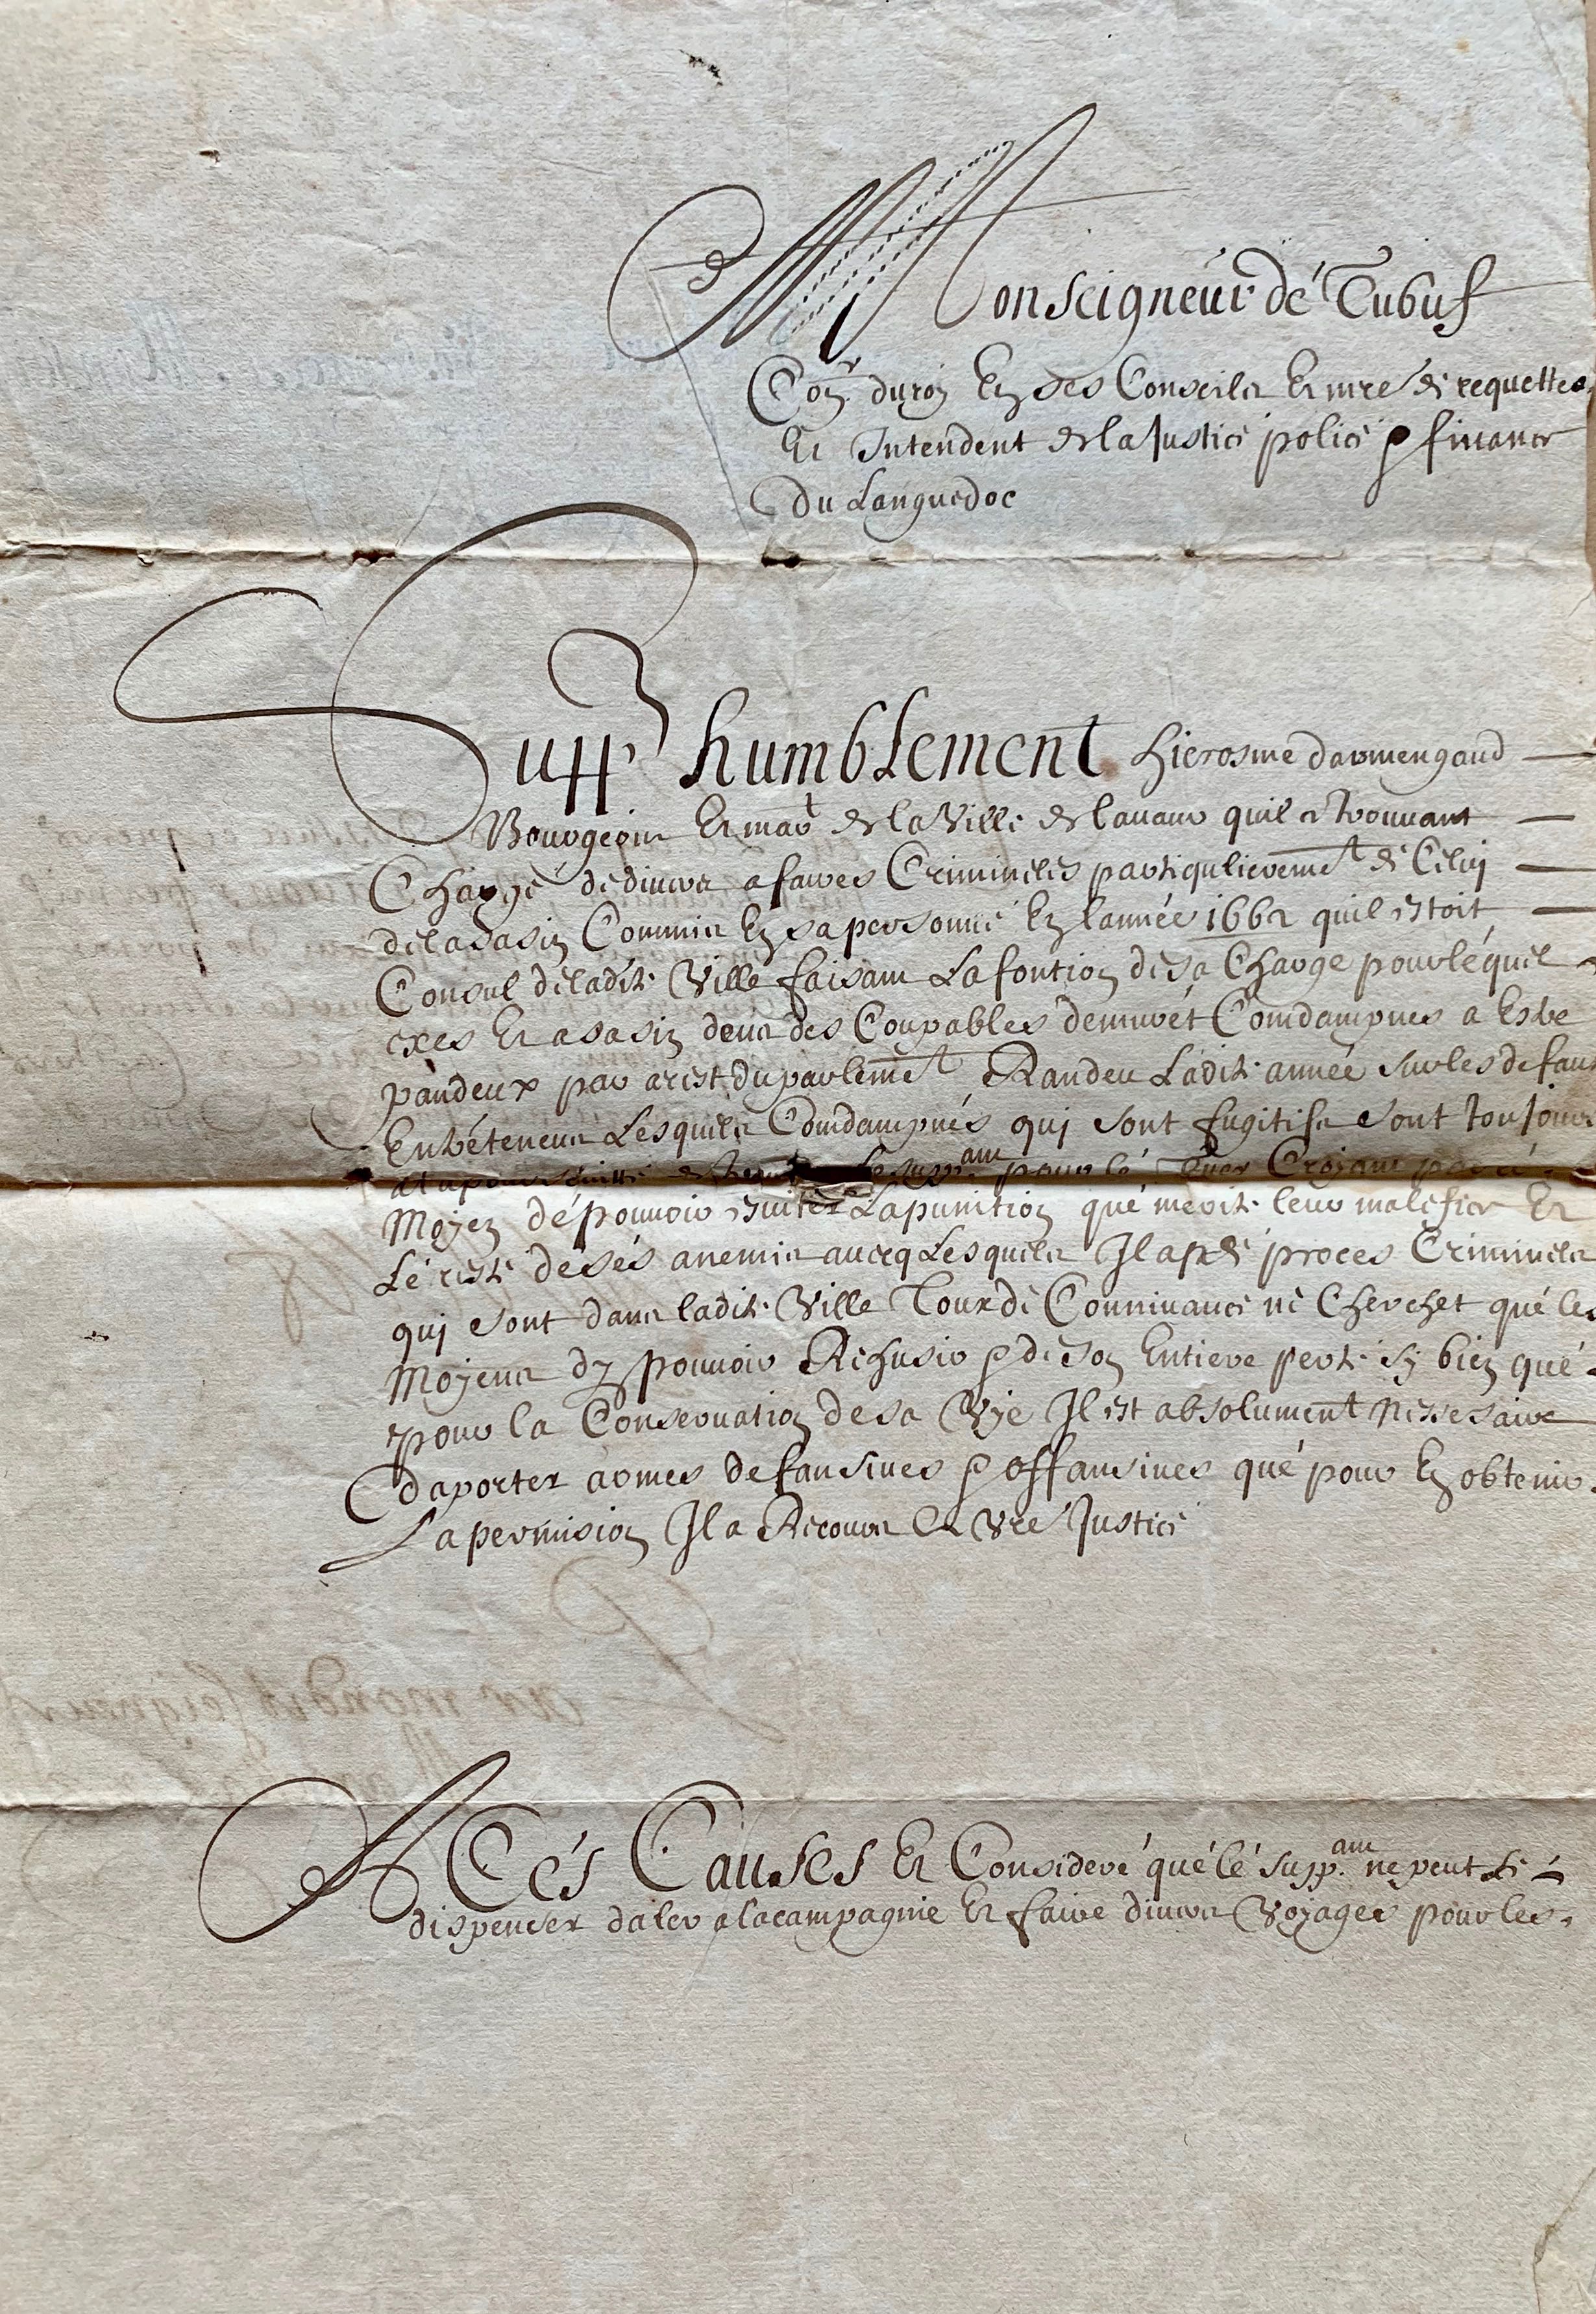 Monseigneur dé Tubuf
Con.er du roy En ses Conseils Et m.re dé requettes
Et Intendent de la Justicé policé & finance
Du Languedoc
Supp. humblement hierosme darmengaud
Bourgeois Et mar.t de la Villé de lauaur quil ce trouuant
Chargé dediuers afaires Criminéles partiqulierem.t dé Celuj
délasasin Commis En sa personné En lannée 1662 quil estoit
Consul déladit. Ville faisant La fontion désa Charge pourléquel
exes Et asasin deus des Coupables demurét Comdampnes a Estre
pandeux par arest du parlem.t Randeu Ladit. année sur les defaus
Lesquels Comdampnés qui sont fugitifs sont toujours
Le supp.ant pour lé Croyant par cé
Moyen dépouuoir euiter Lapunition qué merit. leur malefice Et
Lé resté désés anemis aueq Lesquels Il a proces Criminels
qui sont dans ladit. Ville Toux dé Conniuancé né Cherchet qué les
Moyens dy pouuoir Réhusir & dé son Entiere pert. sy bien qué
pour la Conseruation de sa Vye Il est absolument nessesaire
daporter armes defansiues & offansiues qué pour En obtenir
La permision Il a Recours a Vre Justicé
A Cés Causes Et Consideré qué lé supp.ant ne peut sé
dispenser daler alacampagnie Et faire diuers Voyages pour les